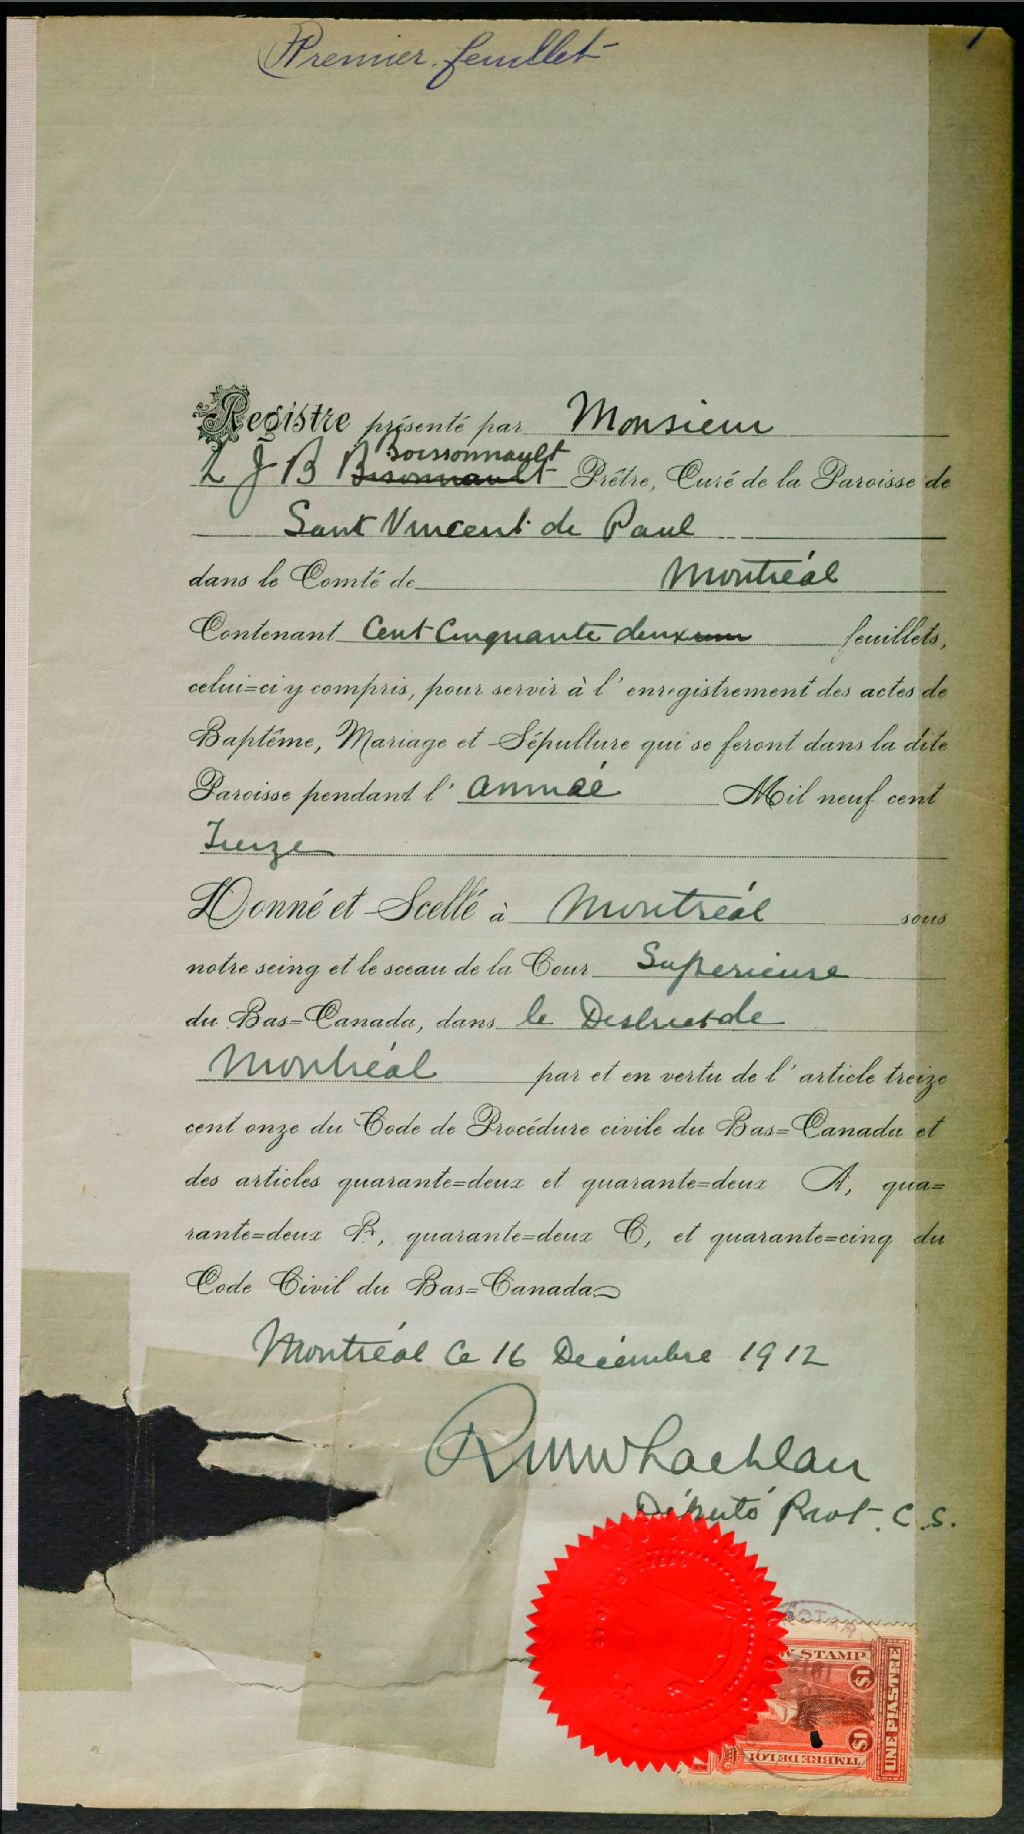 Premier feuillet
Registre présenté par Monsieur
Boissonnault
L J B Bissonnault Prêtre, Curé de la Paroisse de
Saint Vincent de Paul
dans le Comté de Montréal
Contenant Cent Cinquante deux feuillets,
celui=ci y compris, pour servir à l'enregistrement des actes de
Baptême, Mariage et Sépulture qui se feront dans la dite
Paroisse pendant l'année Mil neuf cent
Treize
Donné et Scellé à Montréal sous
notre seing et le sceau de la Cour Superieure
du Bas=Canada, dans le District de
Montréal par et en vertu de l'article treize
cent onze du Code de Procédure civile du Bas=Canada et
des articles quarante=deux et quarante=deux A, qua=
rante=deux B, quarante=deux C, et quarante=cinq du
Code Civil du Bas=Canada
Montréal ce 16 Décembre 1912
Député Prot. C.S.
W STAMP
$1
$1
TIMBRE DE LOI
UNE PIASTRE